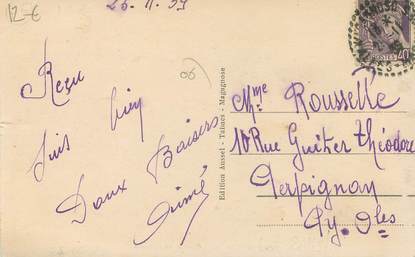 12-€
26.11.39
Reçu
suis bien
Doux Baisers
Aimé
06
Edition Aussel - Tabacs - Magagnosc
Mme Roussette
10 Rue Guiter Théodore
Perpignan
Py. Oles
POSTES 40